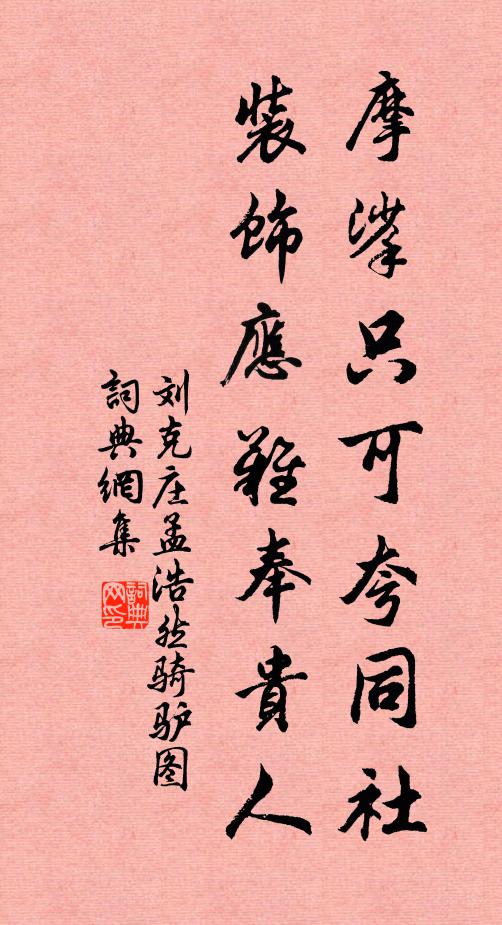 摩挲只可夸同社
裝飾應難奉貴人
刘克庄孟浩然骑驴图
詞典網集
詞典网印